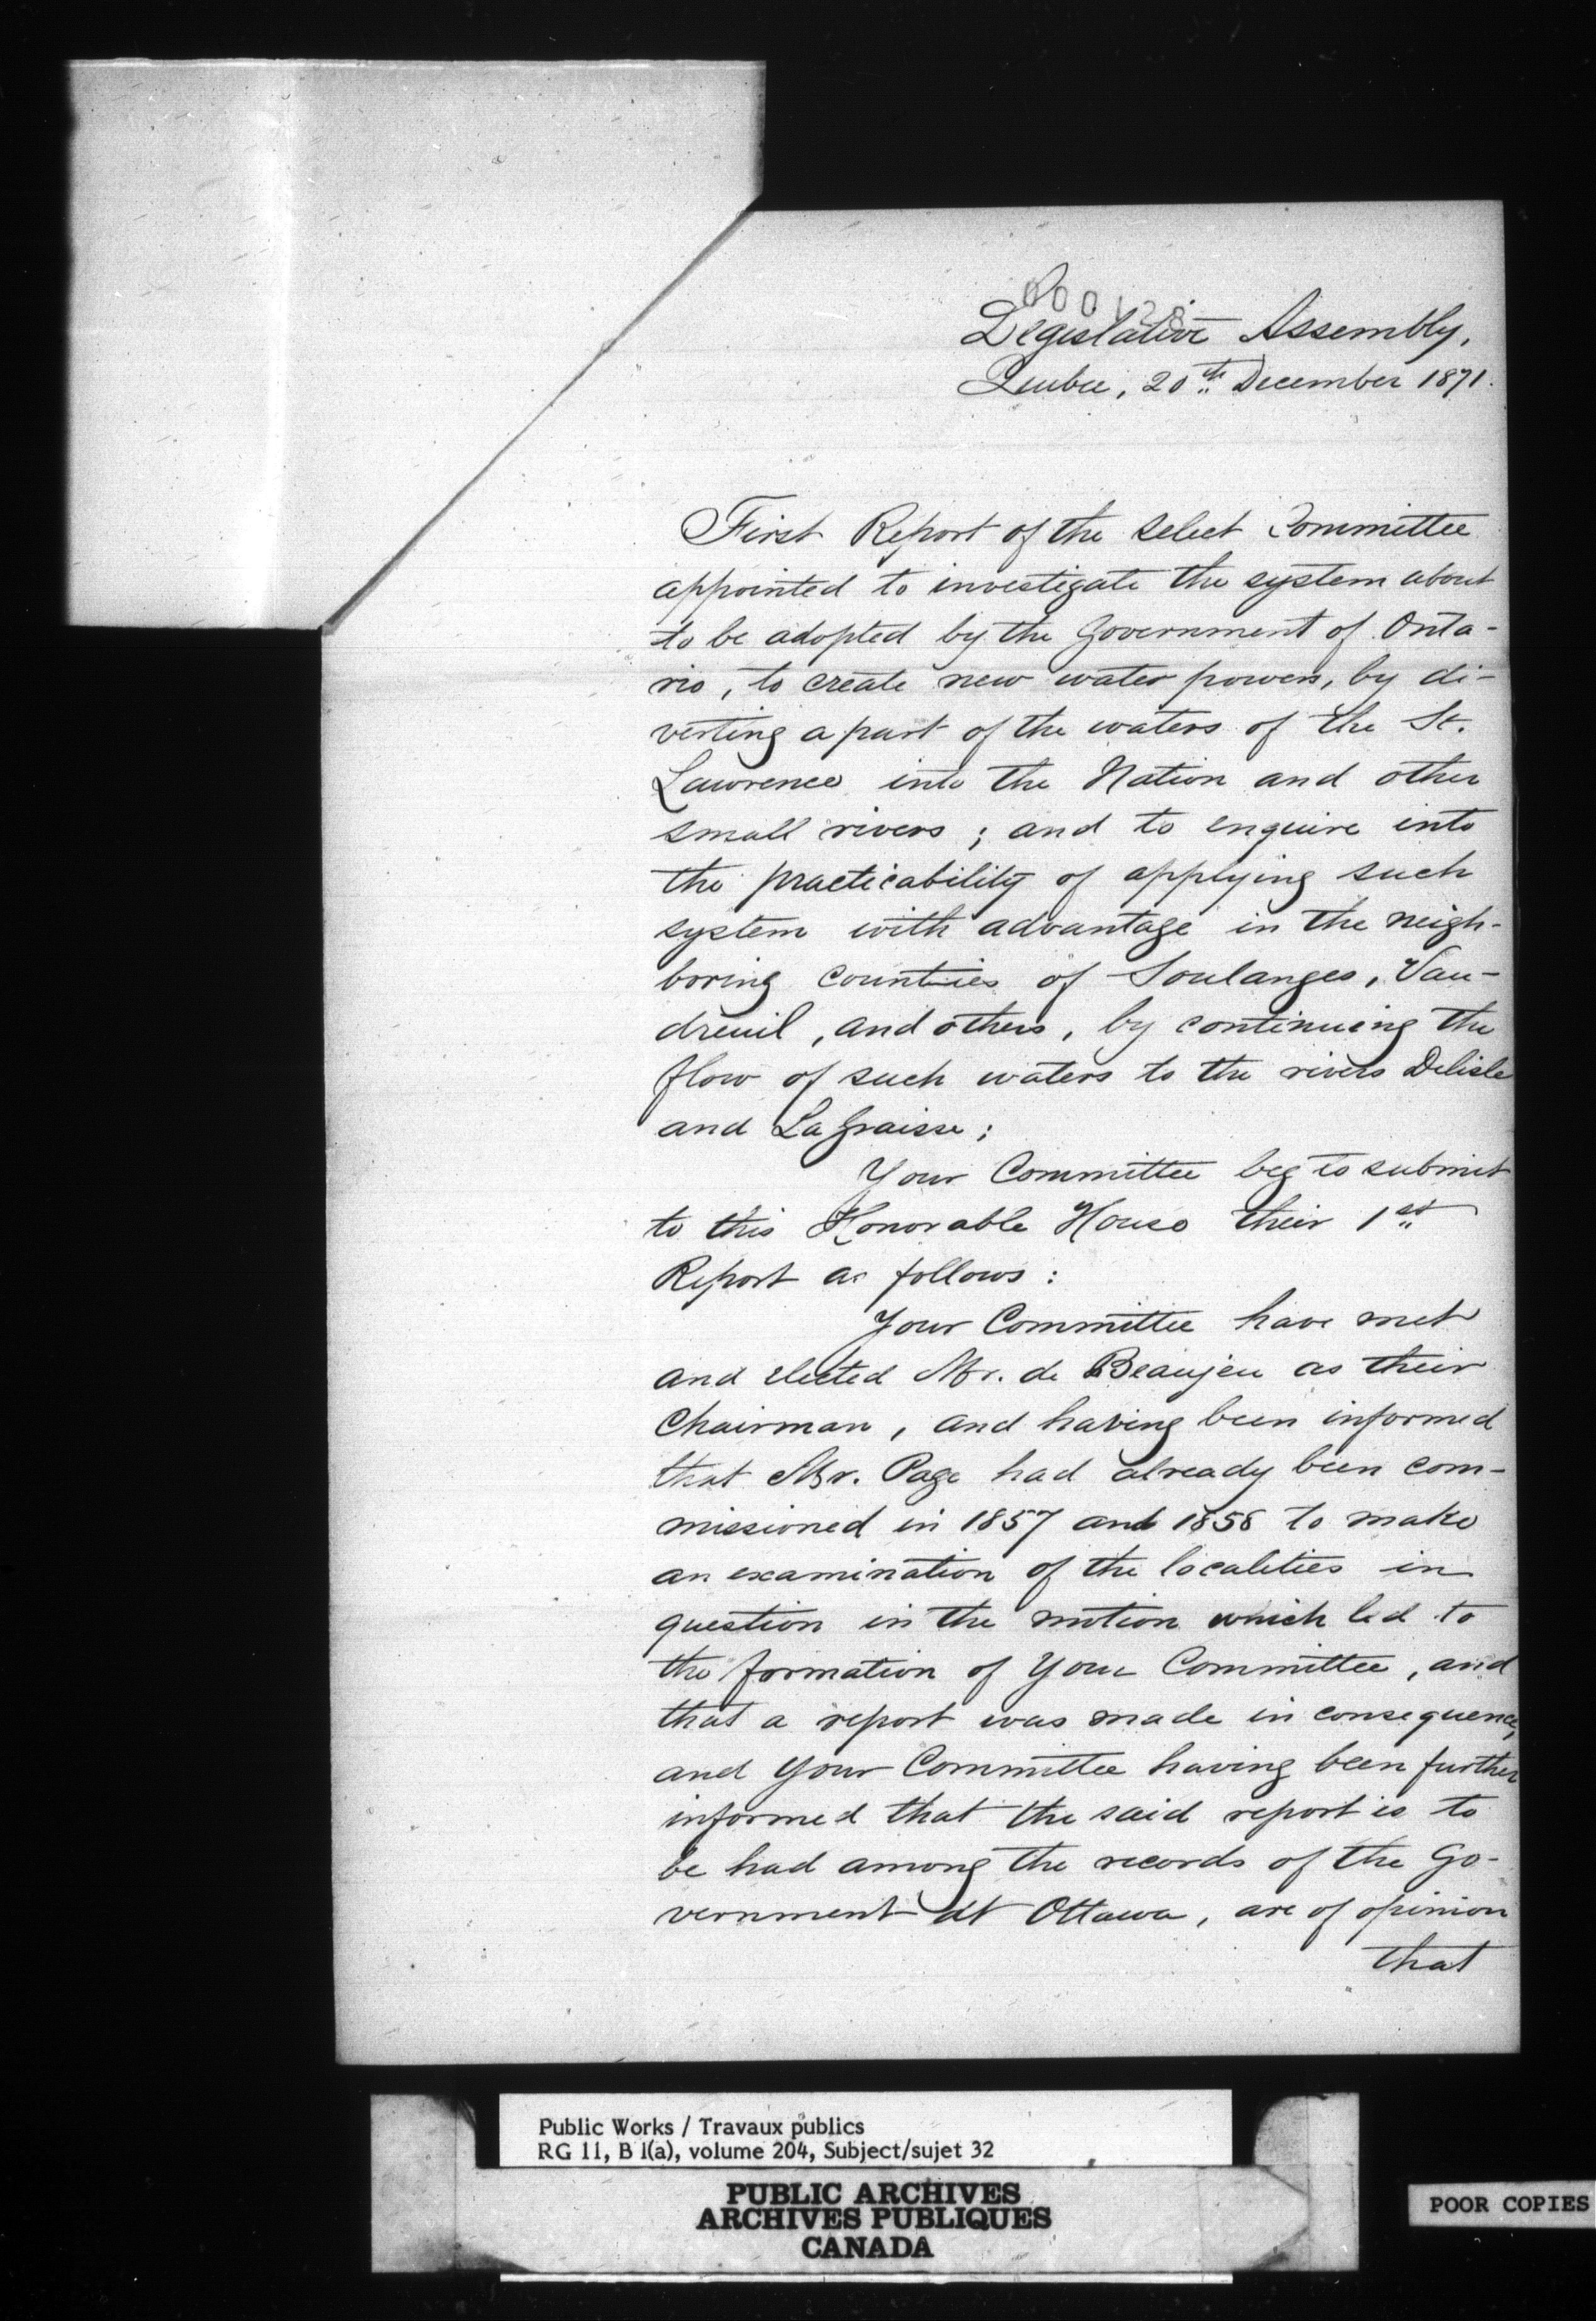 000128
Legislative Assembly,
Quebec, 20th December 1871.
First Report of the Select Committee
appointed to investigate the system about
to be adopted by the Government of Onta-
rio, to create new water powers, by di-
verting a part of the waters of the St.
Lawrence into the Nation and other
small rivers; and to enquire into
the practicability of applying such
system with advantage in the neigh-
boring counties of Soulanges, Vau-
dreuil, and others, by continuing the
flow of such waters to the rivers Delisle
and La Graisse;
Your Committee beg to submit
to this Honorable House their 1st
Report as follows:
Your Committee have met
and elected Mr. de Beaujeu as their
Chairman, and having been informed
that Mr. Page had already been com-
missioned in 1857 and 1858 to make
an examination of the localities in
question in the motion which led to
the formation of Your Committee, and
that a report was made in consequence,
and Your Committee having been further
informed that the said report is to
be had among the records of the Go-
vernment at Ottawa, are of opinion
that
Public Works / Travaux publics
RG 11, B 1(a), volume 204, Subject/sujet 32
PUBLIC ARCHIVES
ARCHIVES PUBLIQUES
CANADA
POOR COPIES